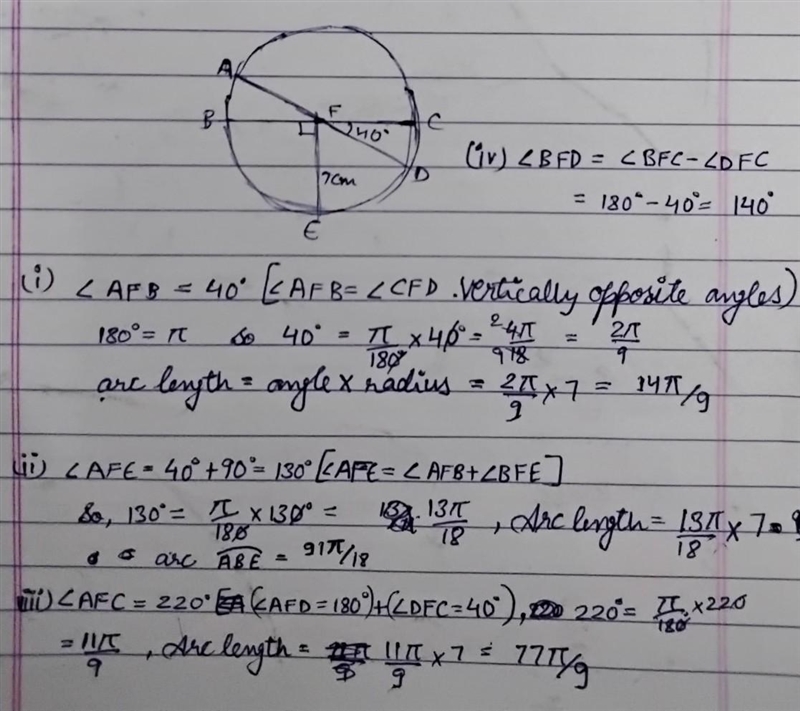 A
B
F
C
40°
7cm
D
E
(iv) ∠BFD = ∠BFC - ∠DFC
= 180° - 40° = 140°
(i) ∠AFB = 40° [∠AFB = ∠CFD . vertically opposite angles)
180° = π so 40° = π/180° × 40° = 2 4π/9 18 = 2π/9
arc length = angle × radius = 2π/9 × 7 = 14π/9
ii) ∠AFE = 40° + 90° = 130° [∠AFE = ∠AFB + ∠BFE]
So, 130° = π/180 × 130° = 13π/18 , Arc length = 13π/18 × 7 =
arc ABE = 91π/18
iii) ∠AFC = 220° (∠AFD = 180°) + (∠DFC = 40°), 220° = π/180 × 220
= 11π/9 , Arc length = 11π/9 × 7 = 77π/9